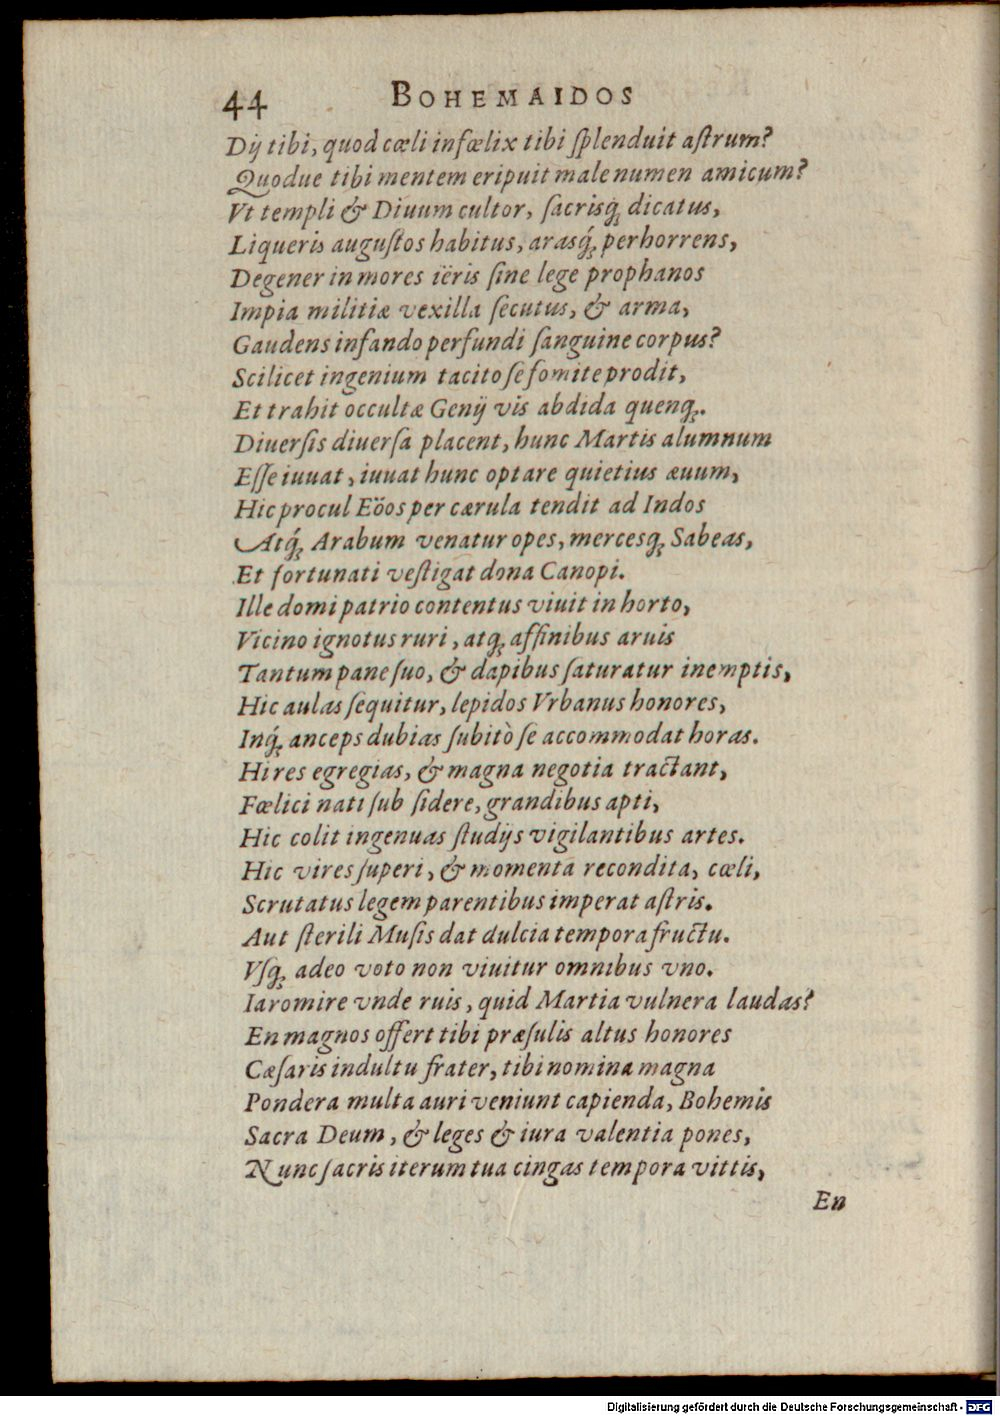 44 BOHEMAIDOS
Dij tibi, quod cœli infœlix tibi ſplenduit aſtrum?
Quodue tibi mentem eripuit male numen amicum?
Vt templi & Diuum cultor, ſacrisq́; dicatus,
Liqueris auguſtos habitus, arasq́; perhorrens,
Degener in mores iëris ſine lege prophanos
Impia militiæ vexilla ſecutus, & arma,
Gaudens infando perfundi ſanguine corpus?
Scilicet ingenium tacito ſe fomite prodit,
Et trahit occultæ Genij vis abdida quenq;.
Diuerſis diuerſa placent, hunc Martis alumnum
Eſſe iuuat, iuuat hunc optare quietius æuum,
Hic procul Eöos per cærula tendit ad Indos
Atq́; Arabum venatur opes, mercesq; Sabeas,
Et fortunati veſtigat dona Canopi.
Ille domi patrio contentus viuit in horto,
Vicino ignotus ruri, atq; affinibus aruis
Tantum pane ſuo, & dapibus ſaturatur inemptis,
Hic aulas ſequitur, lepidos Vrbanus honores,
Inq́; anceps dubias ſubitò ſe accommodat horas.
Hi res egregias, & magna negotia tractant,
Fœlici nati ſub ſidere, grandibus apti,
Hic colit ingenuas ſtudijs vigilantibus artes.
Hic vires ſuperi, & momenta recondita, cœli,
Scrutatus legem parentibus imperat aſtris.
Aut ſterili Muſis dat dulcia tempora fructu.
Vſq; adeo voto non viuitur omnibus vno.
Iaromire vnde ruis, quid Martia vulnera laudas?
En magnos offert tibi præſulis altus honores
Cæſaris indultu frater, tibi nomina magna
Pondera multa auri veniunt capienda, Bohemis
Sacra Deum, & leges & iura valentia pones,
Nunc ſacris iterum tua cingas tempora vittis,
En
Digitalisierung gefördert durch die Deutsche Forschungsgemeinschaft - DFG